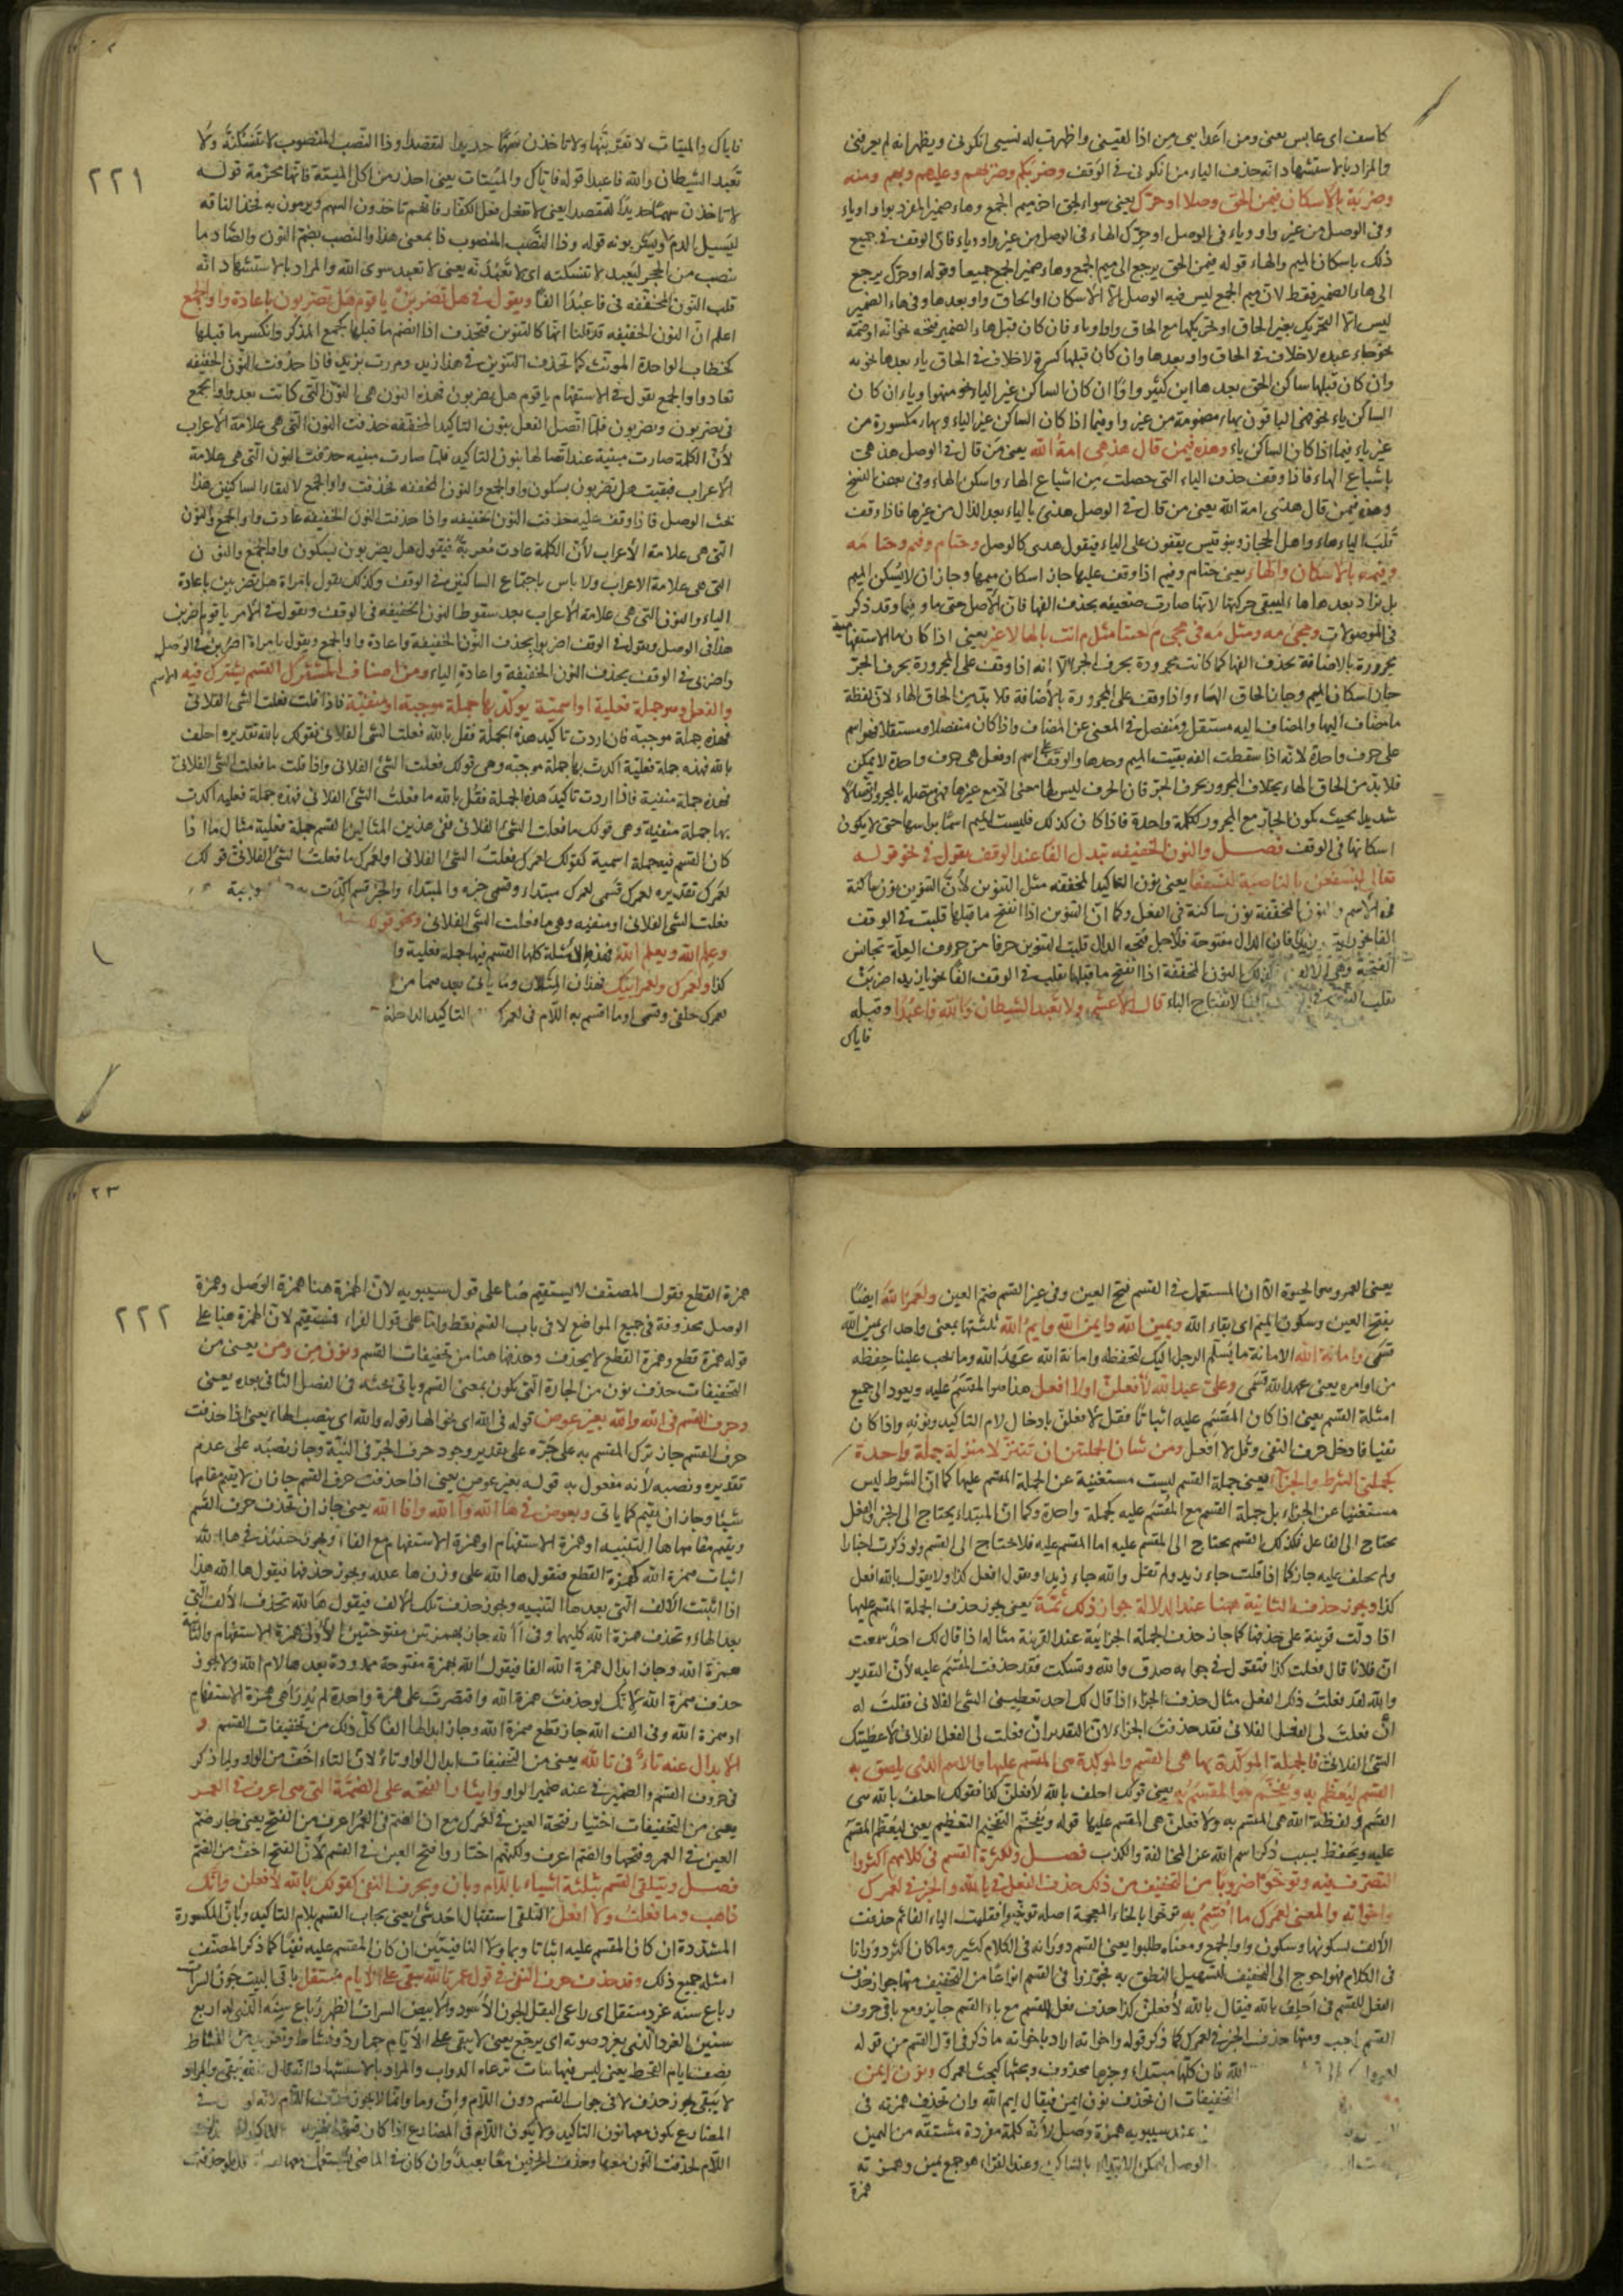 كاسف اى عابس يعنى ومن اعدايى من اذا لقيتنى واظهرت له نسبى انكرنى ويظهر انه لم يعرفنى
والمراد بالاستشهاد انه حذف الياء من انكرنى فى الوقف وضربكم وضربهم وعليهم وبهم ومنه
وضربة بالاسكان فيمن الحق وصلا او حرك يعنى سواء الحق اخر ميم الجمع وهاء ضمير المفرد بواو او ياء
وفى الوصل من غير واو وياء فى الوصل او حرك الهاء فى الوصل من غير واو وياء فان الوقف فى جميع
ذلك باسكان الميم والهاء قوله فيمن الحق يرجع الى ميم الجمع وهاء ضمير الجمع جميعا وقوله او حرك يرجع
الى هاء الضمير فقط لان ميم الجمع ليس فيه الوصل الا الاسكان او الحاق واو بعدها وفى هاء الضمير
ليس الا التحريك بغير الحاق او تحريكها مع الحاق واو او ياء فان كان قبل هاء الضمير فتحه نحو انه او ضمة
نحو جاء عبده لا خلاف فى الحاق واو بعدها وان كان قبلها كسرة لا خلاف فى الحاق ياء بعدها نحو به
وان كان قبلها ساكن الحق بعدها ابن كثير واوا ان كان الساكن غير الياء نحو منهو وياء ان كان
الساكن ياء نحو الباقون بهاء مضمومة من غير واو فيما اذا كان الساكن غير الياء وبهاء مكسورة من
غير ياء فيما اذا كان الساكن ياء وهذه فيمن قال هذهى امة الله يعنى من قال فى الوصل هذهى
باشباع الهاء فاذا وقف حذف الياء التى حصلت من اشباع الهاء واسكن الهاء وفى بعض النسخ
وهذه فيمن قال هذى امة الله يعنى من قال فى الوصل هذى بالياء بعد الذال من غيرها فاذا وقف
قلب الياء هاء واهل الحجاز وبنو قيس يقفون على الياء فيقول هذى كالوصل وحتام وفيم وحتامه
وفيمه بالاسكان والهاء يعنى حتام وفيم اذا وقف عليها جاز اسكان ميمها وجاز ان لا يسكن الميم
بل يزاد بعدها هاء ليبقى حركتها لانها صارت ضعيفه بحذف الفها فان الاصل حتى ما وفيما وقد ذكر
فى الموصولات ومجئ مه ومثل مه فى مجئ م جئت ومثل م انت بالهاء لا غير يعنى اذا كان ما الاستفهامية
مجرورة بالاضافة بحذف الفها كما كانت مجرورة بحرف الجر الا انه اذا وقف على المجرورة بحرف الجر
جاز اسكان الميم وجاز الحاق الهاء واذا وقف على المجرورة بالاضافة فلا بد من الحاق الهاء لان لفظة
ما مضاف اليها والمضاف اليه مستقل ومنفصل فى المعنى عن المضاف واذا كان منفصلا ومستقلا فهو اسم
على حرف واحدة لانه اذا سقطت الفه بقيت الميم وحدها والوقف على اسم او فعل على حرف واحدة لا يمكن
فلا بد من الحاق الهاء بخلاف المجرور بحرف الجر فان الحرف ليس لها معنى الا مع غيرها فهى متصلة بالمجرور اتصالا
شديدا بحيث يكون الجار مع المجرور ككلمة واحدة فاذا كان كذلك فليست الميم اسما براسها حتى لا يكون
اسكانها فى الوقف فصل والنون الخفيفه تبدل الفا عند الوقف يقول فى نحو قوله
تعالى لنسفعن بالناصية لنسفعا يعنى نون التاكيد المخففه مثل التنوين لان التنوين نون ساكنة
فى الاسم والنون المخففة نون ساكنة فى الفعل وكما ان التنوين اذا انفتح ما قبلها قلبت فى الوقف
الفا نحو رايت زيدا فان الدال مفتوحة فلاجل فتحه الدال قلبت التنوين حرفا من حروف العلة تجانس
الفتحة وهى الالف كذلك النون المخففة اذا انفتح ما قبلها تقلب فى الوقف الفا نحو يا زيد اضربن
تقلب النون الفا لانفتاح الباء قال الاعشى ولا تعبد الشيطان والله فاعبدا وقبله
فاياك
٢٢١
فاياك والميتات لا تقربنها ولا تاخذن سهما حديدا لتفصدا وذا النصب المنصوب لا تنسكنه ولا
تعبد الشيطان والله فاعبدا قوله فاياك والميتات يعنى احذر من اكل الميتة فانها محرمة قوله
لا تاخذن سهما حديدا لتفصدا يعنى لا تفعل فعل الكفار فانهم تاخذون السهم ويرمون به فخذ الناقة
ليسيل الدم ويشربونه قوله وذا النصب المنصوب ذا بمعنى هذا والنصب بضم النون والصاد ما
نصب من الحجر ليعبد لا تنسكنه اى لا تعبدنه يعنى لا تعبد سوى الله والمراد بالاستشهاد انه
قلب النون المخففه فى فاعبدا الفا ويقول فى هل تضربن يا قوم هل تضربون باعادة واو الجمع
اعلم ان النون الخفيفه قد قلنا انها كالتنوين فتحذف اذا انضم ما قبلها كجمع المذكر وانكسر ما قبلها
كخطاب الواحدة المونث كما تحذف التنوين فى هذا زيد ومررت بزيد فاذا حذفت النون الخفيفه
تعاد واو الجمع يقول فى الاستفهام يا قوم هل تضربون فهذه النون هى النون التى كانت بعد واو الجمع
فى تضربون ويضربون فلما اتصل الفعل بنون التاكيد المخففه حذفت النون التى هى علامة الاعراب
لان الكلمة صارت مبنية عند اتصالها بنون التاكيد فلما صارت مبنيه حذفت النون التى هى علامة
الاعراب فبقيت هل تضربون بسكون واو الجمع والنون المخففه فحذفت واو الجمع لالتقاء الساكنين هذا
بحث الوصل فاذا وقف عليه حذفت النون الخفيفه واذا حذفت النون الخفيفه عادت واو الجمع والنون
التى هى علامة الاعراب لان الكلمة عادت معربة فيقول هل يضربون بسكون واو الجمع والنون
التى هى علامة الاعراب ولا باس باجتماع الساكنين فى الوقف وكذلك يقول يا مراة هل تضربين باعادة
الياء والنون التى هى علامة الاعراب بعد سقوط النون الخفيفه فى الوقف وتقول فى الامر يا قوم اضربن
هذا فى الوصل ويقول فى الوقف اضربوا بحذف النون الخفيفة واعادة واو الجمع ويقول يا مراة اضربن فى الوصل
واضربى فى الوقف بحذف النون الخفيفة واعادة الياء ومن اصناف المشترك القسم يشترك فيه الاسم
والفعل وهو جملة فعلية او اسمية يوكد بها جملة موجبة او منفية فاذا قلت فعلت الشئ الفلانى
فهذه جملة موجبة فان اردت تاكيد هذه الجملة فقل بالله فعلت الشئ الفلانى فقولك بالله تقديره احلف
بالله فهذه جملة فعلية اكدت بها جملة موجبة وهى قولك فعلت الشئ الفلانى واذا قلت ما فعلت الشئ الفلانى
فهذه جملة منفية فاذا اردت تاكيد هذه الجملة فقل بالله ما فعلت الشئ الفلانى فهذه جملة فعليه اكدت
بها جملة منفية وهى قولك ما فعلت الشئ الفلانى ففى هذين المثالين القسم جملة فعلية مثال ما اذا
كان القسم فيه جملة اسمية كقولك لعمرك فعلت الشئ الفلانى او لعمرك ما فعلت الشئ الفلانى قولك
لعمرك تقديره لعمرك قسمى لعمرك مبتداء وقسمى خبره والمبتداء والخبر قسم اكدت به
فعلت الشئ الفلانى او منفيه وهى ما فعلت الشئ الفلانى ونحو قولك
وعلم الله ويعلم الله فهذه الامثلة كلها القسم فيها جملة فعلية وا
كذا ولعمرك ولعمر ابيك فهذان المثالان وما ياتى بعدهما من
لعمرك حلفى وقسمى او ما اقسم به اللام فى لعمرك التاكيد الداخلة
يعنى العمر وهو الحيوة الا ان المستعمل فى القسم فتح العين وفى غير القسم ضم العين ولعمر الله ايضا
بفتح العين وسكون الميم اى بقاء الله ويمين الله وايمن الله وايم الله ثلثتها بمعنى واحد اى يمين الله
قسمى وامانة الله الامانة ما يسلم الرجل اليك لتحفظه وامانة الله عهد الله وما يجب علينا حفظه
من اوامره يعنى عهد الله قسمى وعلى عهد الله لافعلن او لا افعل هذا هو المقسم عليه ويعود الى جميع
امثلة القسم يعنى اذا كان المقسم عليه اثباتا فقل لافعلن بادخال لام التاكيد ونونه واذا كان
نفيا فادخل حرف النفى وقل لا افعل ومن شان الجملتين ان تتنزلا منزلة جملة واحدة
كجملتى الشرط والجزاء يعنى جملة القسم ليست مستغنية عن الجملة المقسم عليها كما ان الشرط ليس
مستغنيا عن الجزاء بل جملة القسم مع المقسم عليه كجملة واحدة وكما ان المبتداء يحتاج الى الخبر والفعل
يحتاج الى الفاعل فكذلك القسم يحتاج الى المقسم عليه اما المقسم عليه فلا يحتاج الى القسم ولو ذكرت اخبارا
ولم يحلف عليه جاز كما اذا قلت جاء زيد ولم تقل والله جاء زيد او يقول افعل كذا ولا يقول بالله افعل
كذا ويجوز حذف الثانية ههنا عند الدلالة جواز ذلك ثمة يعنى يجوز حذف الجملة المقسم عليها
اذا دلت قرينة على حذفها كما جاز حذف الجملة الجزائية عند القرينة مثاله اذا قال لك احد سمعت
ان فلانا قال فعلت كذا فتقول فى جوابه صدق والله وتسكت فقد حذفت المقسم عليه لان التقدير
والله لقد فعلت ذلك الفعل مثال حذف الجزاء اذا قال لك احد تعطينى الشئ الفلانى فقلت له
ان فعلت لى الفعل الفلانى فقد حذفت الجزاء لان التقدير ان فعلت لى الفعل الفلانى لاعطيتك
الشئ الفلانى فالجملة الموكدة بها هى القسم والموكدة هى المقسم عليها والاسم الذى يلصق به
القسم ليعظم به ويفخم هو المقسم به يعنى قولك احلف بالله لافعلن كذا فقولك احلف بالله هى
القسم ولفظة الله هى المقسم به ولافعلن هى المقسم عليها قوله ويفخم التفخيم التعظيم يعنى ليعظم المقسم
عليه ويحفظ بسبب ذكر اسم الله عن المخالفة والكذب فصل ولكثرة القسم فى كلامهم اكثروا
التصرف فيه وتوخوا ضروبا من التخفيف من ذلك حذف الفعل فى بالله والخبر فى لعمرك
واخواته والمعنى لعمرك ما اقسم به توخوا بالخاء المعجمة اصله توخيوا فقلبت الياء الفا ثم حذفت
الالف لسكونها وسكون واو الجمع ومعناه طلبوا يعنى القسم دورانه فى الكلام كثير وما كان اكثر دورانا
فى الكلام فهو احوج الى التخفيف لتسهيل النطق به فجوزوا فى القسم انواعا من التخفيف منها جواز حذف
الفعل للقسم فى احلف بالله فيقال بالله لافعلن كذا حذف فعل القسم مع باء القسم جايز ومع باقى حروف
القسم واجب ومنها حذف الخبر فى لعمرك كما ذكر قوله واخواته اراد باخواته ما ذكر فى اول القسم من قوله
الله فان كلها مبتداء وخبرها محذوف وبحثها كبحث لعمرك ونون ايمن
التخفيفات ان تحذف نون ايمن فيقال ايم الله وان تحذف همزته فى
عند سيبويه همزة وصل لانه كلمة مفردة مشتقة من اليمين
الوصل ليمكن الابتداء بالساكن وعند الفراء هو جمع يمين وهمزته
همزة
٢٢٢
همزة القطع فقول المصنف لا يستقيم هنا على قول سيبويه لان الهمزة هنا همزة الوصل وهمزة
الوصل محذوفة فى جميع المواضع لا فى باب القسم فقط واما على قول الفراء فيستقيم لان الهمزة هنا على
قوله همزة قطع وهمزة القطع لا يحذف وحذفها هنا من تخفيفات القسم ونون من ومن يعنى من
التخفيفات حذف نون من الجارة التى تكون بمعنى القسم وياتى بحثه فى الفصل الثانى بعده يعنى
وحرف القسم فى الله والله بغير عوض قوله فى الله اى بجر الهاء قوله والله اى بنصب الهاء يعنى اذا حذفت
حرف القسم جاز ترك المقسم به على جره على تقدير وجود حرف الجر فى النية وجاز نصبه على عدم
تقديره ونصبه لانه مفعول به قوله بغير عوض يعنى اذا حذفت حرف القسم جاز ان لا يقيم مقامها
شيئا وجاز ان يقيم كما ياتى وبعوض فى ها الله وآ الله وافا الله يعنى جاز ان تحذف حرف القسم
ويقيم مقامها ها التنبيه او همزة الاستفهام او همزة الاستفهام مع الفاء ويجوز حينئذ فى ها الله
اثبات همزة الله كهمزة القطع فتقول ها الله على وزن ها عبد الله ويجوز حذفها فيقول ها الله هذا
اذا اثبتت الالف التى بعدها التنبيه ويجوز حذف تلك الالف فيقول هالله تحذف الالف التى
بعد الهاء وتحذف همزة الله كليهما وفى آ الله جاز بهمزتين مفتوحتين الاولى همزة الاستفهام والثانية
همزة الله وجاز ابدال همزة الله الفا فيقول آلله بهمزة مفتوحة ممدودة بعدها لام الله ولا يجوز
حذف همزة الله لانك لو حذفت همزة الله واقتصرت على همزة واحدة لم يدر اهى همزة الاستفهام
او همزة الله وفى افا الله جاز قطع همزة الله وجاز ابدالها الفا كل ذلك من تخفيفات القسم و
الابدال عنه تاء فى تالله يعنى من التخفيفات ابدال الواو تاء لان التاء اخف من الواو ولما ذكر
فى حروف القسم والضمير فى عنه ضمير الواو وايثار الفتحة على الضمة التى هى اعرف فى العمر
يعنى من التخفيفات اختيار فتحة العين فى لعمرك مع ان الضم فى العمر اعرف من الفتح يعنى جاز ضم
العين فى العمر وفتحها والضم اعرف ولكنهم اختاروا فتح العين فى القسم لان الفتح اخف من الضم
فصل ويتلقى القسم بثلثة اشياء باللام وبان وبحرف النفى كقولك بالله لافعلن وانك
ذاهب وما فعلت ولا افعل التلقى استقبال احد شئ يعنى يجاب القسم بلام التاكيد وبان المكسورة
المشددة ان كان المقسم عليه اثباتا وبما ولا النافيتين ان كان المقسم عليه نفيا كما ذكر المصنف
امثلة جميع ذلك وقد حذف حرف النفى فى قول عمر تالله يبقى على الايام مبتقل باقى البيت جون السراة
رباع سنه غرد مبتقل اى راعى البقل الجون الاسود والابيض السراة الظهر رباع سنه الذى له اربع
سنين الغرد الذى يغرد صوته اى يرجع يعنى لا يبقى على الايام حمار ذو نشاط
يصف ايام القحط يعنى ليس فيها نبات ترعاه الدواب والمراد بالاستشهاد انه قال تالله يبقى والمراد
لا يبقى يجوز حذف لا فى جواب القسم دون اللام وان وما وانما لا يجوز حذف اللام لانه فى
المضارع يكون معها نون التاكيد ولا يكون اللام فى المضارع اذا كان
اللام لحذفت النون معها وحذف الحرفين معا بعيد وان كان فى الماضى